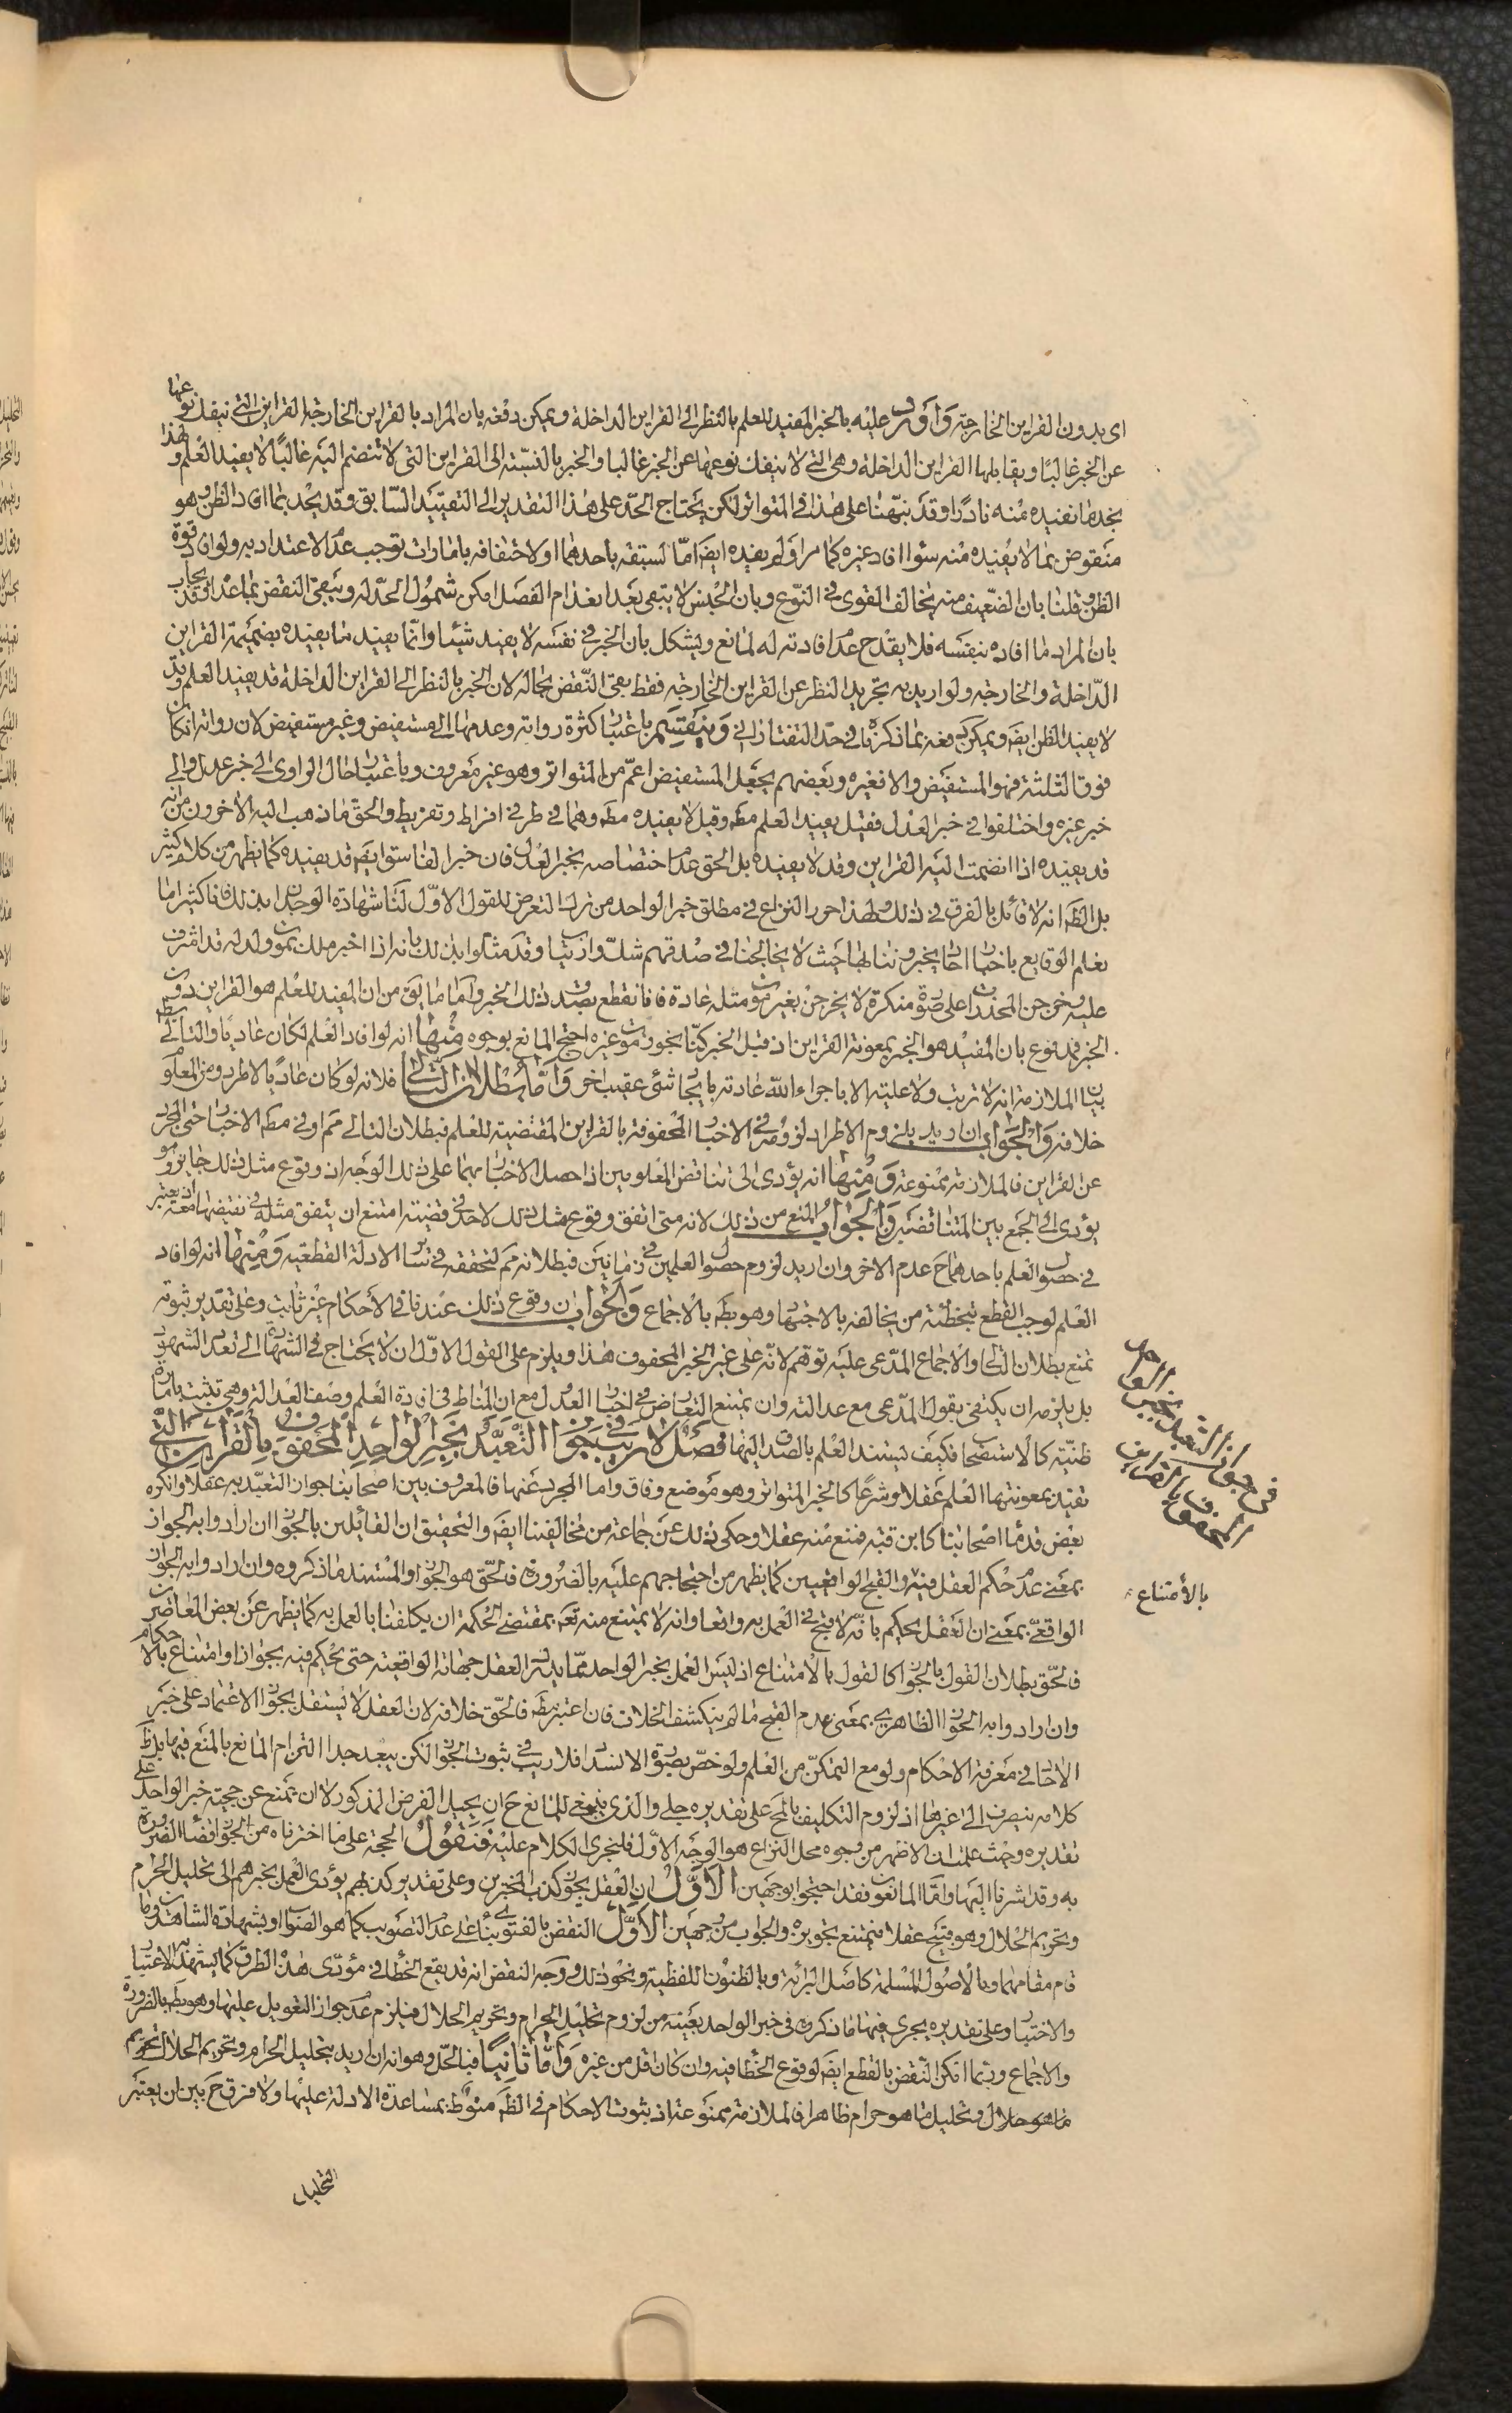 اى بدون القراين الخارجة واورد عليه بالخبر المفيد للعلم بالنظر الى القراين الداخلة ويمكن دفعه بان المراد بالقراين الخارجة القراين التى ينفك نوعها
عن الخبر غالبا ويقابلها القراين الداخلة وهى التى لا ينفك نوعها عن الخبر غالبا والخبر بالنسبة الى القراين التى لا تنضم اليه غالبا لا يفيد العلم ولهذا
نجدها نفيده منه نادرا وقد نبهنا على هذا فى المتواتر لكن يحتاج الحد على هذا التقدير الى التقييد السابق وقد يحد بما افاد الظن وهو
منقوض بما لا يفيده منه سواء افاد غيره كما مر او لم يفده ايضا اما لسبقه باحدهما او لاحتفافه بامارات توجب عدم الاعتداد به ولو افاد قوة
الظن وقلنا بان الضعيف منه يخالف القوى فى النوع وبان الجنس لا يبقى بعد انعدام الفصل امكن شمول الحد له ويبقى النقض بما عداه وقد يجاب
بان المراد ما افاده بنفسه فلا يقدح عدم افادته له لمانع ويشكل بان الخبر فى نفسه لا يفيد شيئا وانما يفيد ما يفيده بضميمة القراين
الداخلة والخارجة ولو اريد به تجريد النظر عن القراين الخارجة فقط بقى النقض بحاله لان الخبر بالنظر الى القراين الداخلة قد يفيد العلم وقد
لا يفيد الظن ايضا ويمكن دفعه بما ذكرناه فى حد التفتازانى وينقسم باعتبار كثرة رواته وعدمها الى مستفيض وغير مستفيض لان رواته ان كان
فوق الثلثة فهو المستفيض والا فغيره وبعضهم يجعل المستفيض اعم من المتواتر وهو غير معروف وباعتبار حال الراوى الى خبر عدل والى
خبر غيره واختلفوا فى خبر العدل فقيل يفيد العلم مطه وقيل لا يفيده مطه وهما فى طرفى افراط وتفريط والحق ما ذهب اليه الاخرون من انه
قد يفيده اذا انضمت اليه القراين وقد لا يفيده بل الحق عدم اختصاصه بخبر العدل فان خبر الفاسق ايضا قد يفيده كما يظهر من كلام كثير
بل الظه انه لا قائل بالفرق فى ذلك ولهذا حرر النزاع فى مطلق خبر الواحد من ترك التعرض للقول الاول لنا شهادة الوجدان بذلك فانا كثيرا ما
نعلم الوقايع باخبار احاد يخبروننا بها بحيث لا يخالجنا فى صدقهم شك وارتياب وقد مثلوا بذلك بانه اذا اخبر ملك بموت ولد له قد اشرف
عليه وخرجن المخدرات على صورة منكرة لا يخرجن بغير موت مثله عادة فانا نقطع بصدق ذلك الخبر واما ما يق من ان المفيد للعلم هو القراين دون
الخبر فمدفوع بان المفيد هو الخبر بمعونة القراين اذ قبل الخبر كنا نجوز موت غيره احتج المانع بوجوه منها انه لو افاد العلم لكان عاديا والتالى بطه
بيان الملازمة انه لا ترتب ولا علية الا باجراء الله عادته بايجاد شئ عقيب اخر واما بطلان التالى فلانه لو كان عاديا لاطرد ومن المعلوم
خلافه والجواب ان اريد بلزوم الاطراد لزومه فى الاخبار المحفوفة بالقراين المقتضية للعلم فبطلان التالى مم او فى مطه الاخبار حتى المجرد
عن القراين فالملازمة ممنوعة ومنها انه يؤدى الى تناقض المعلومين اذا حصل الاخبار بهما على ذلك الوجه اذ وقوع مثل ذلك جايز وهو
يؤدى الى الجمع بين المتناقضين والجواب المنع من ذلك لانه متى اتفق وقوع مثل ذلك لاحد فى قضية امتنع ان يتفق مثله فى نقيضها معه اذ يعتبر
فى حصول العلم باحدهما ح عدم الاخر وان اريد لزوم حصول العلمين فى زمانين فبطلانه مم لتحققه فى ساير الادلة القطعية ومنها انه لو افاد
العلم لوجب القطع بتخطئة من يخالفه بالاجتهاد وهو بطه بالاجماع والجواب ان وقوع ذلك عندنا فى الاحكام غير ثابت وعلى تقدير ثبوته
نمنع بطلان التالى والاجماع المدعى عليه توهم لانه على غير الخبر المحفوف هذا ويلزم على القول الاول ان لا يحتاج فى الشهادة الى تعدد الشهود
بل يلزمه ان يكتفى بقول المدعى مع عدالته وان يمتنع التعارض فى اخبار العدول مع ان المناط فى افادة العلم وصف العدالة وهى تثبت بامارة
ظنية كالاستصحاب فكيف يستند العلم بالصدق اليها فصل لا ريب فى جواز التعبد بخبر الواحد المحفوف بالقراين التى
تفيد بمعونتها العلم عقلا وشرعا كالخبر المتواتر وهو موضع وفاق واما المجرد عنها فالمعروف بين اصحابنا جواز التعبد به عقلا وانكره
بعض قدماء اصحابنا كابن قبه فمنع منه عقلا وحكى ذلك عن جماعة من مخالفينا ايضا والتحقيق ان القائلين بالجواز ان ارادوا به الجواز
بمعنى عدم حكم العقل فيه والقبح الواقعيين كما يظهر من احتجاجهم عليه بالضرورة فالحق هو الجواز والمستند ما ذكروه وان ارادوا به الجواز
الواقعى بمعنى ان العقل يحكم بانه لا قبح فى العمل به واقعا وانه لا يمتنع منه تعه بمقتضى الحكمة ان يكلفنا بالعمل به كما يظهر عن بعض المعاصرين
فالحق بطلان القول بالجواز كالقول بالامتناع اذ ليس العمل بخبر الواحد مما يدرك العقل جهاته الواقعية حتى يحكم فيه بجواز او امتناع بالاحكام
وان ارادوا به الجواز الظاهرى بمعنى عدم القبح ما لم ينكشف الخلاف فان اعتبر مطه فالحق خلافه لان العقل لا يستقل بجواز الاعتماد على خبر
الاحاد فى معرفة الاحكام ولو مع التمكن من العلم ولو خص بصورة الانسداد فلا ريب فى ثبوت الجواز لكن يبعد جدا التزام المانع بالمنع فيها بل ظه
كلامه ينصرف الى غيرها اذ لزوم التكليف بالمح على تقديره جلى والذى ينبغى للمانع ح ان يحيل الفرض المذكور لا ان يمنع عن حجية خبر الواحد على
تقديره وحيث علمت ان الاظهر من وجوه محل النزاع هو الوجه الاول فلنجرى الكلام عليه فنقول الحجة على ما اخترناه من الجواز قضاء الضرورة
به وقد اشرنا اليها واما المانعون فقد احتجوا بوجهين الاول ان العقل يجوز كذب المخبرين وعلى تقدير كذبهم يؤدى العمل بخبرهم الى تحليل الحرام
وتحريم الحلال وهو قبيح عقلا فيمتنع تجويزه والجواب من وجهين الاول النقض بالفتوى بناء على عدم التصويب كما هو الصواب وبشهادة الشاهدين وما
قام مقامهما وبالاصول المسلمة كاصل البرائة وبالظنون اللفظية ونحو ذلك ووجه النقض انه قد يقع الخطأ فى مؤدى هذه الطرق كما يشهد به الاعتبار
والاختبار وعلى تقديره يجرى فيها ما ذكروه فى خبر الواحد بعينه من لزوم تحليل الحرام وتحريم الحلال فيلزم عدم جواز التعويل عليها وهو بطه بالضرورة
والاجماع وربما امكن النقض بالقطع ايضا لوقوع الخطأ فيه وان كان اقل من غيره واما ثانيا فبالحل وهو انه ان اريد بتحليل الحرام وتحريم الحلال تحريم
ما هو حلال وتحليل ما هو حرام ظاهرا فالملازمة ممنوعة اذ ثبوت الاحكام فى الظه منوط بمساعدة الادلة عليها ولا فرق ح بين ان يعتبر
التحليل
فى جواز التعبد بخبر الواحد
المحفوف بالقراين
بالامتناع